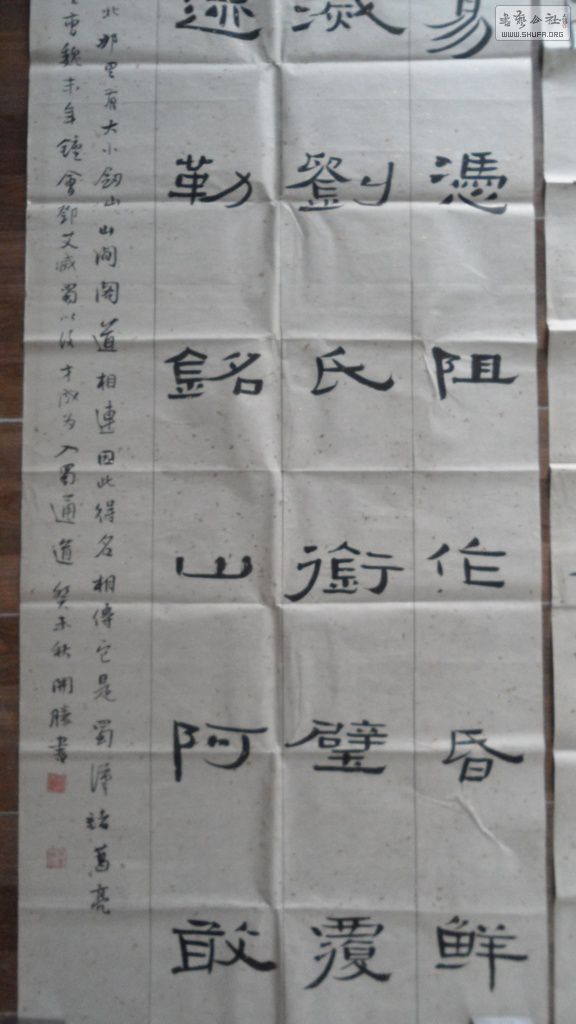 易憑阻作昏鮮
滅劉氏銜璧覆
迹勒銘山阿敢
北那里有大小劍山山间阁道相連因此得名相傳它是蜀漢諸葛亮
魏末年鐘會鄧艾滅蜀以後才成为入蜀通道癸未秋開勝書
書藝公社
WWW.SHUFA.ORG